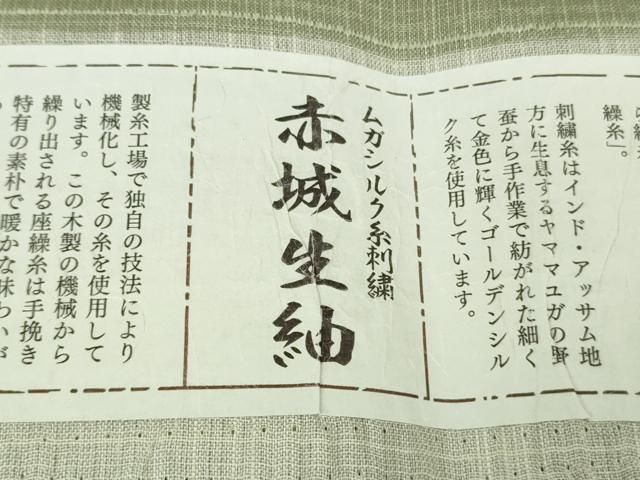 繰糸」。
刺繍糸はインド・アッサム地
方に生息するヤママユガの野
蚕から手作業で紡がれた細く
て金色に輝くゴールデンシル
ク糸を使用しています。
ムガシルク糸刺繍
赤城生紬
製糸工場で独自の技法により
機械化し、その糸を使用して
います。この木製の機械から
繰り出される座繰糸は手挽き
特有の素朴で暖かな味わいが